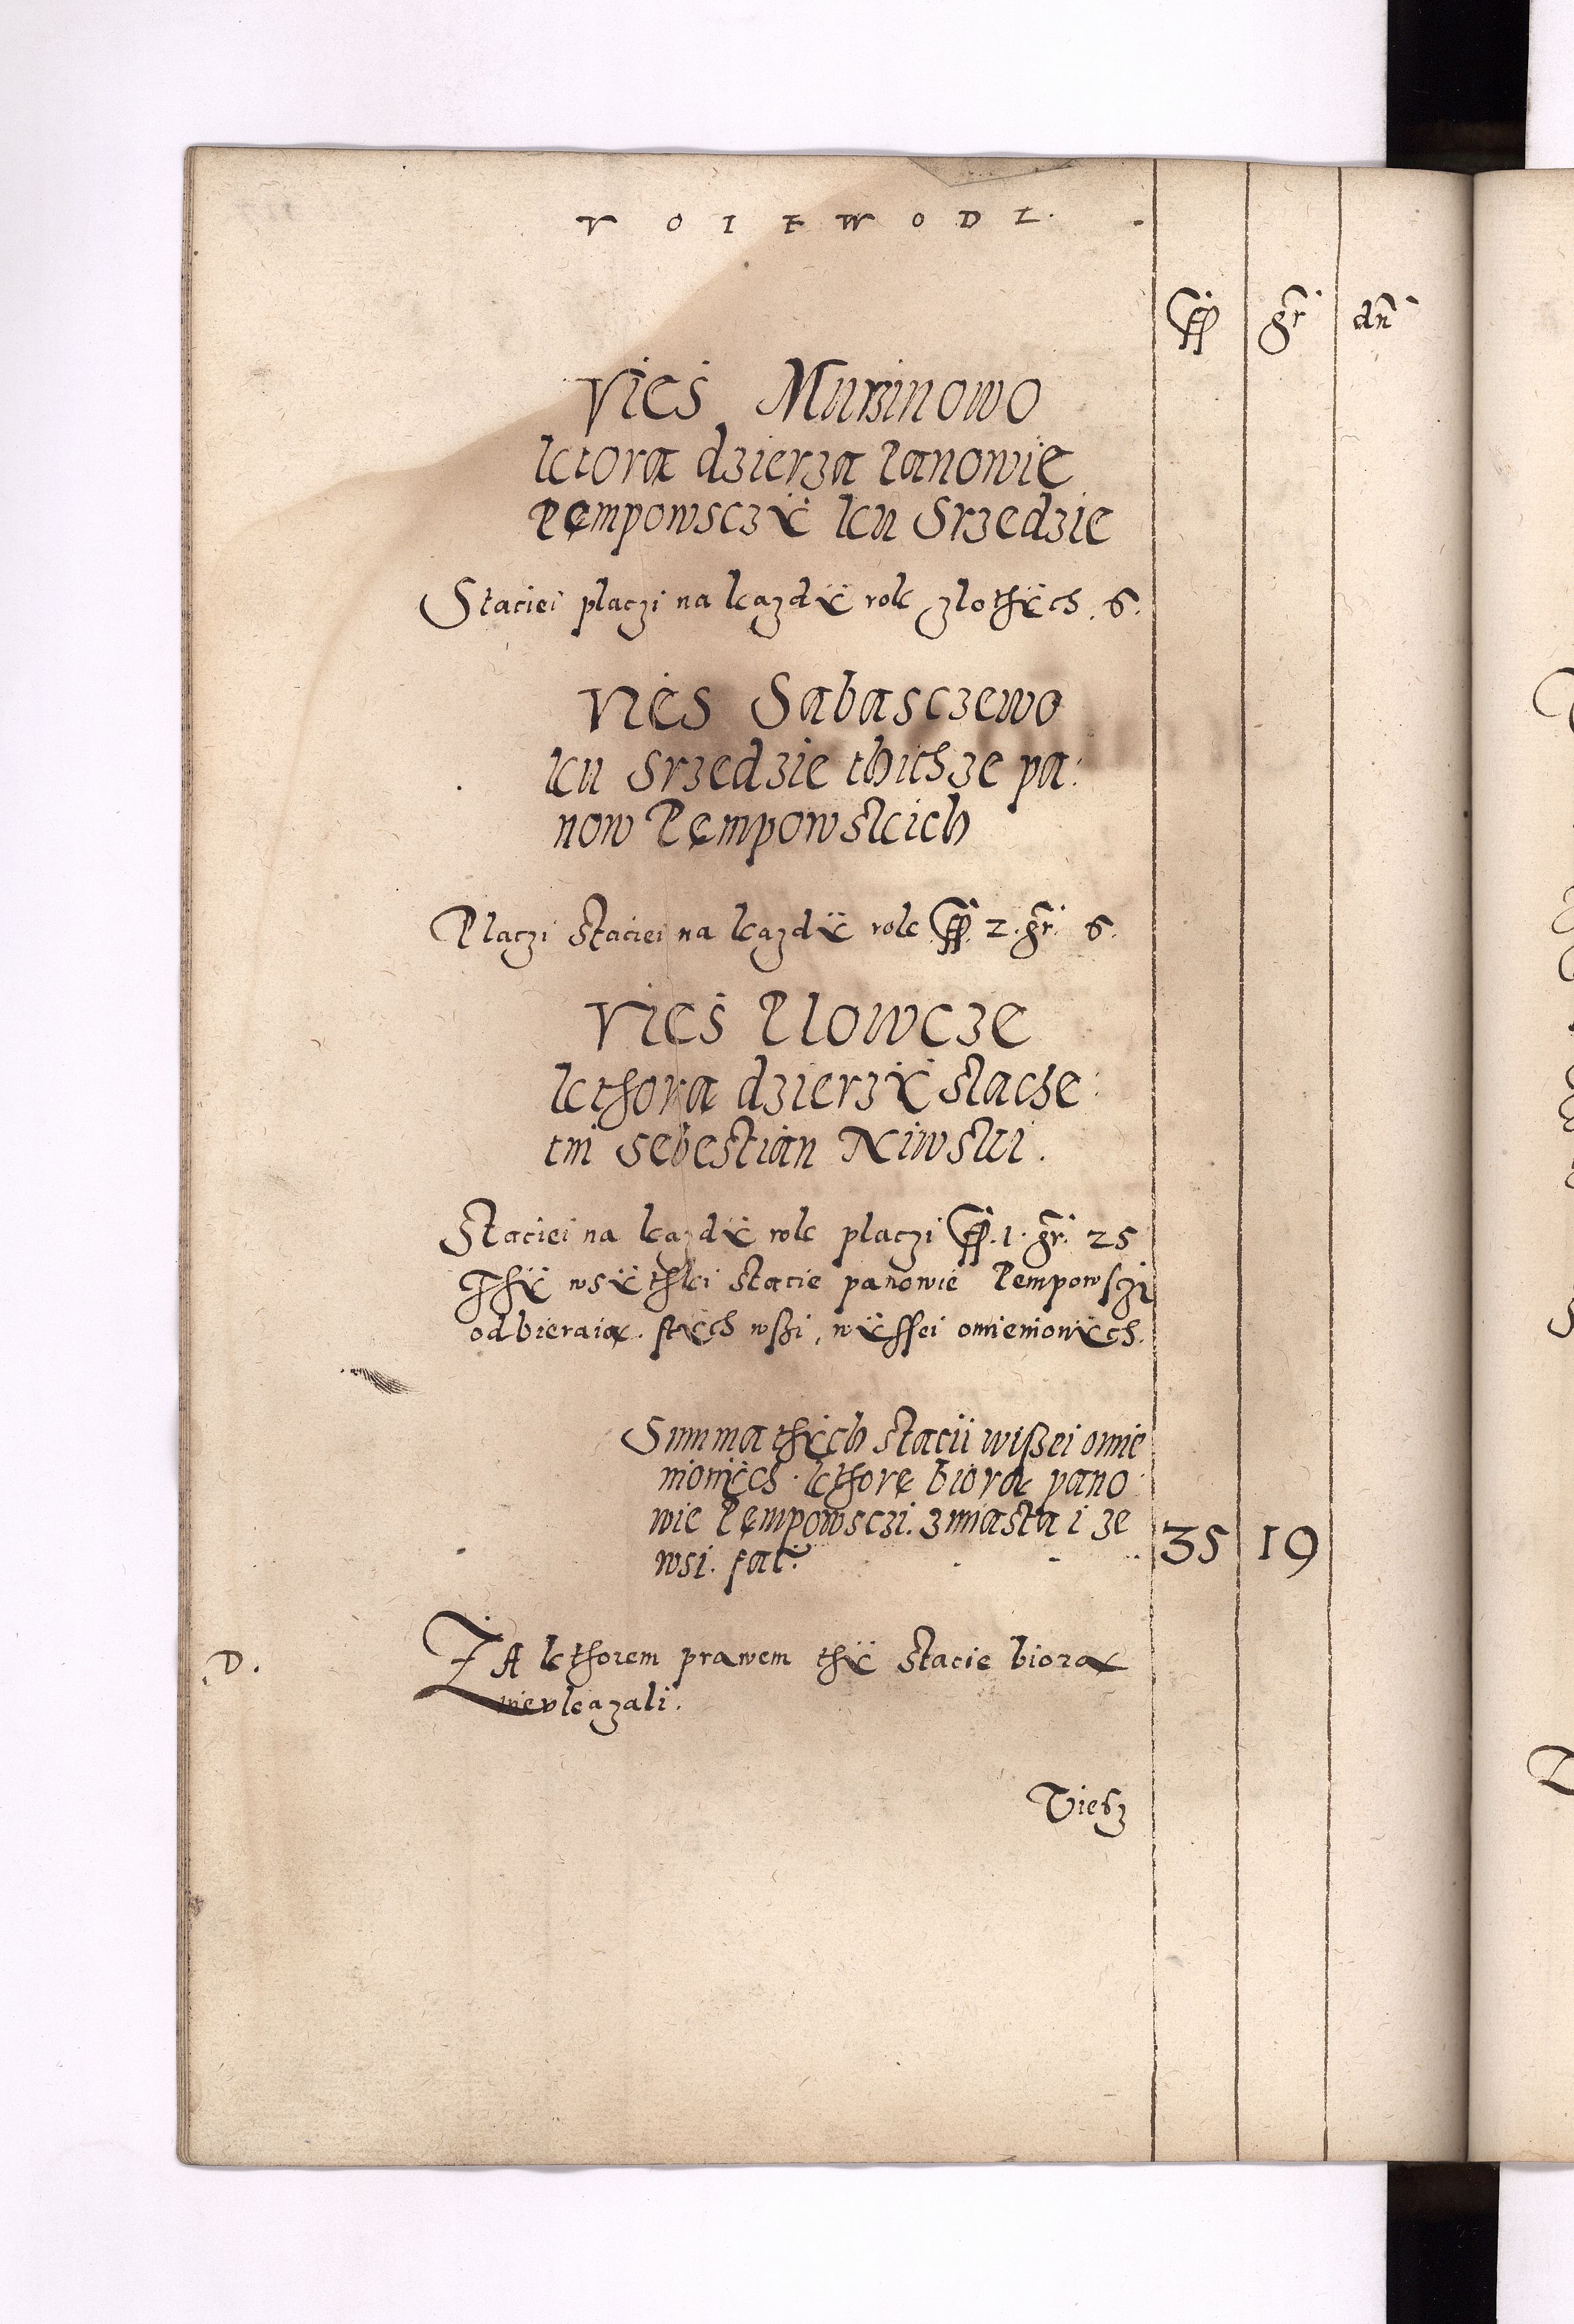 VOIEWODZ.
fl gr dn
Vies Murzinowo
ktora dzierza Panowie
Pęmpowsczÿ ku Srzedzie
Staciei placzi na kazdÿ rok zlothÿch . 6.
Vies Sabasczewo
ku Srzedzie thichze pa:
now Pęmpowskich
Placzi staciei na kazdÿ rok fl. 2. gr. 6.
Vies Plowcze
kthora dzierzÿ slache:
tni Sebestian Niwski.
Staciei na kazdÿ rok placzi fl. 1. gr. 25
Thÿ wsÿthki stacie panowie Pempowsʒi
odbieraią. stÿch wsʒi, wÿssei omienionÿch.
Summa thÿch stacii wißei omie
nionÿch. kthorę biorą pano:
wie Pęmpowsczi. z miasta i ze
wsi. fat. 35 19
D. ZA kthorem prawem thÿ stacie biorą
nievkazali.
Viesz